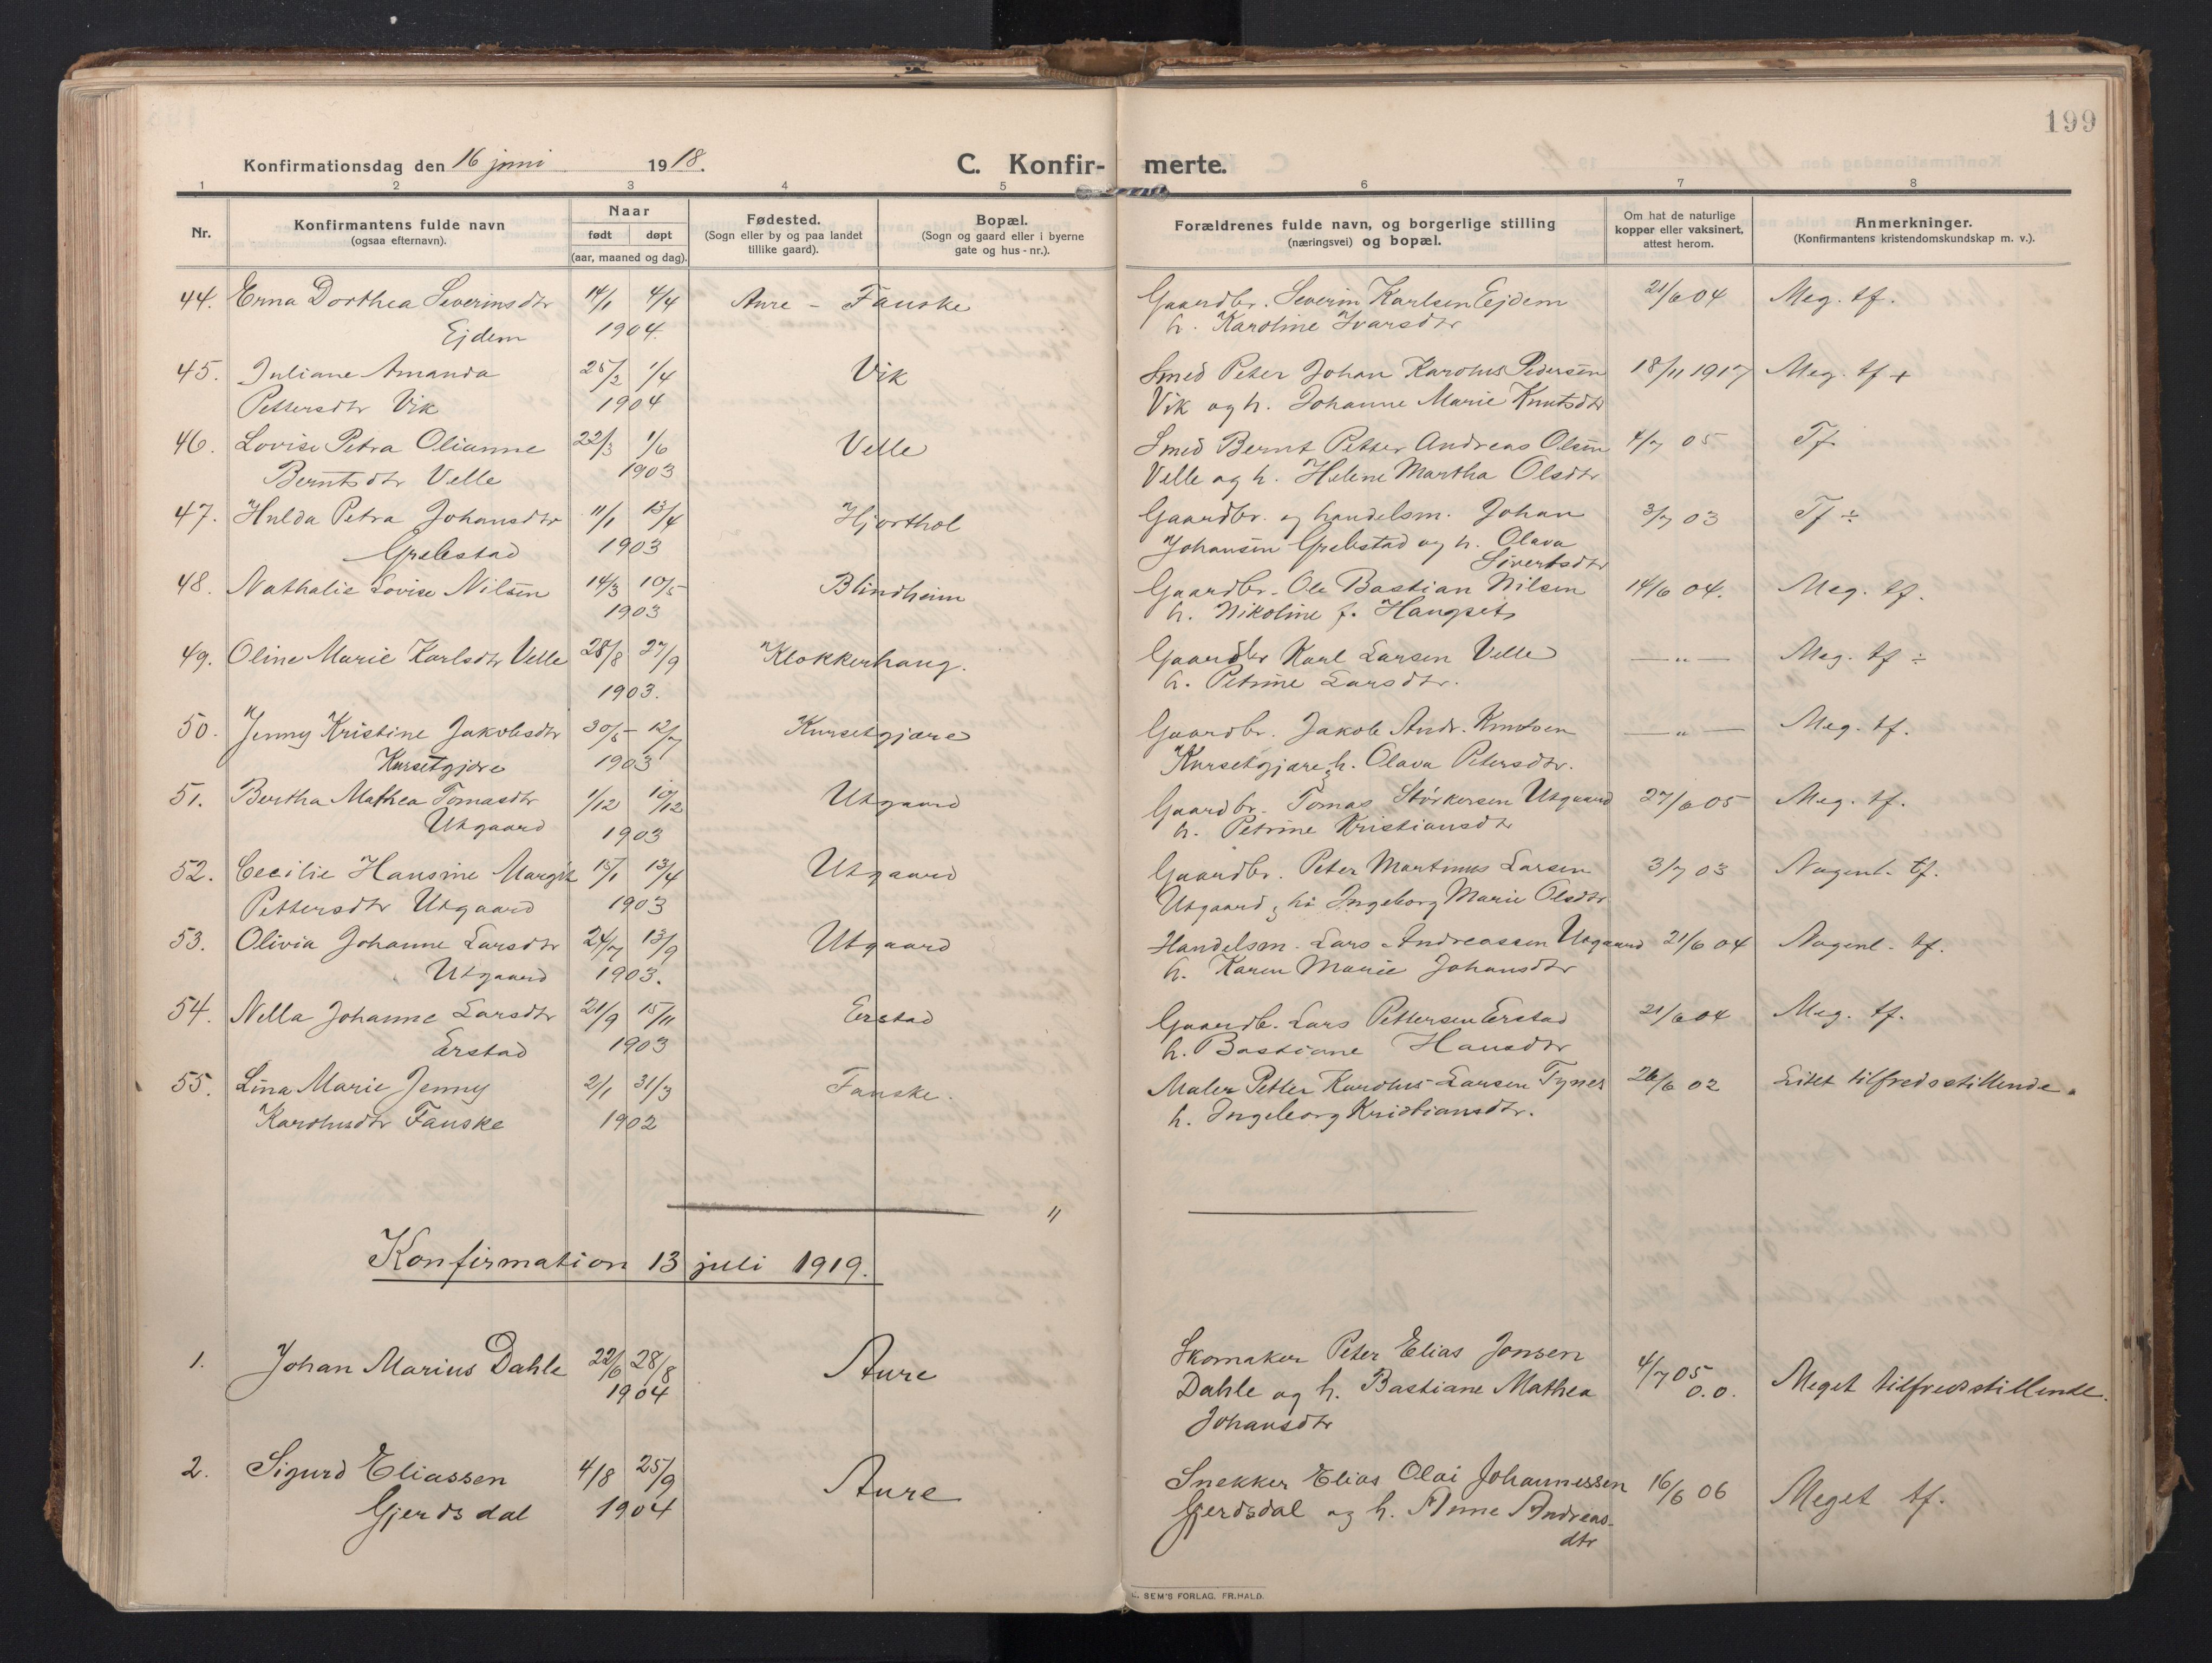 199
Konfirmationsdag den 16 juni 1918.
C. Konfir- merte.
1 2 3 4 5 6 7 8
Nr.
Konfirmantens fulde navn
(ogsaa efternavn).
Naar
født døpt
(aar, maaned og dag).
Fødested.
(Sogn eller by og paa landet
tillike gaard).
Bopæl.
(Sogn og gaard eller i byerne
gate og hus-nr.).
Forældrenes fulde navn, og borgerlige stilling
(næringsvei) og bopæl.
Om hat de naturlige
kopper eller vaksinert,
attest herom.
Anmerkninger.
(Konfirmantens kristendomskundskap m. v.).
44. Erna Dorthea Severinsdtr 14/1 4/4 Aure - Fauske Gaardbr. Severin Karlsen Ejdem 21/6 04 Meg. tf.
Ejdem 1904. h. Karoline Ivarsdtr
45. Juliane Amanda 25/2 1/4 Vik Smed Peter Johan Karolus Pedersen 18/11 1917 Meg. tf +
Pettersdtr Vik 1904 Vik og h. Johanne Marie Knutsdtr
46. Lovise Petra Olianne 22/3 1/6 Velle Smed Bernt Petter Andreas Olsen 4/7 05 Tf
Berntsdtr Velle 1903 Velle og h. Helene Martha Olsdtr
47. Hulda Petra Johansdtr 11/1 13/4 Hjorthol Gaardbr. og handelsm. Johan 3/7 03 Tf ÷
Grebstad 1903 Johansen Grebstad og h. Olava
Sivertsdtr
48. Nathalie Lovise Nilsen 14/3 10/5 Blindheim Gaardbr. Ole Bastian Nilsen 14/6 04. Meg. tf.
1903 h. Nikoline f. Haugset
49. Oline Marie Karlsdtr Velle 28/8 27/9 Klokkerhaug. Gaardbr Karl Larsen Velle — „ — Meg. tf ÷
1903. h. Petrine Larsdtr.
50. Jenny Kristine Jakobsdtr 30/5 - 12/7 Kursetgjære Gaardbr. Jakob Andr. Knutsen — „ — Meg. tf.
Kursetgjære 1903 Kursetgjære, h. Olava Petersdtr.
51. Bertha Mathea Tomasdtr 1/12 10/12 Utgaard Gaardbr. Tomas Størkersen Utgaard 27/6 05 Meg. tf.
Utgaard 1903 h. Petrine Kristiansdtr
52. Cecilie Hansine Margit 15/1 13/4 Utgaard Gaardbr. Peter Martinus Larsen 3/7 03 Nogenl. tf.
Pettersdtr Utgaard 1903 Utgaard, h. Ingeborg Marie Olsdtr
53. Olivia Johanne Larsdtr 24/7 13/9 Utgaard Handelsm. Lars Andreassen Utgaard 21/6 04 Nogenl. tf.
Utgaard 1903. h. Karen Marie Johansdtr
54. Nella Johanne Larsdtr 21/9 15/11 Erstad Gaardb. Lars Pettersen Erstad 21/6 04 Meg. tf.
Erstad 1903 h. Bastiane Hansdtr
55. Lina Marie Jenny 2/1 31/3 Fauske. Maler Petter Karolus Larsen Tynes 26/6 02 Litet tilfredsstillende.
Karolusdtr Fauske 1902 h. Ingeborg Kristiansdtr.
"
Konfirmation 13 juli 1919.
1. Johan Marius Dahle 22/6 28/8 Aure Skomaker Peter Elias Jonsen 4/7 05 Meget tilfredsstillende.
1904 Dahle og h. Bastiane Mathea o.o.
Johansdtr
2. Sigurd Eliassen 4/8 25/9 Aure Snekker Elias Olai Johannessen 16/6 06 Meget tf.
Gjerdsdal 1904 Gjerdsdal og h. Anne Andreas-
dtr
SEM'S FORLAG. FR.HALD.